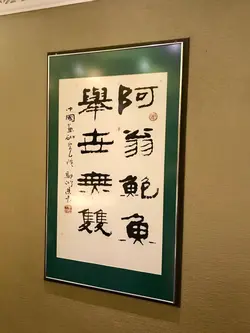 阿翁鮑魚
舉世無雙